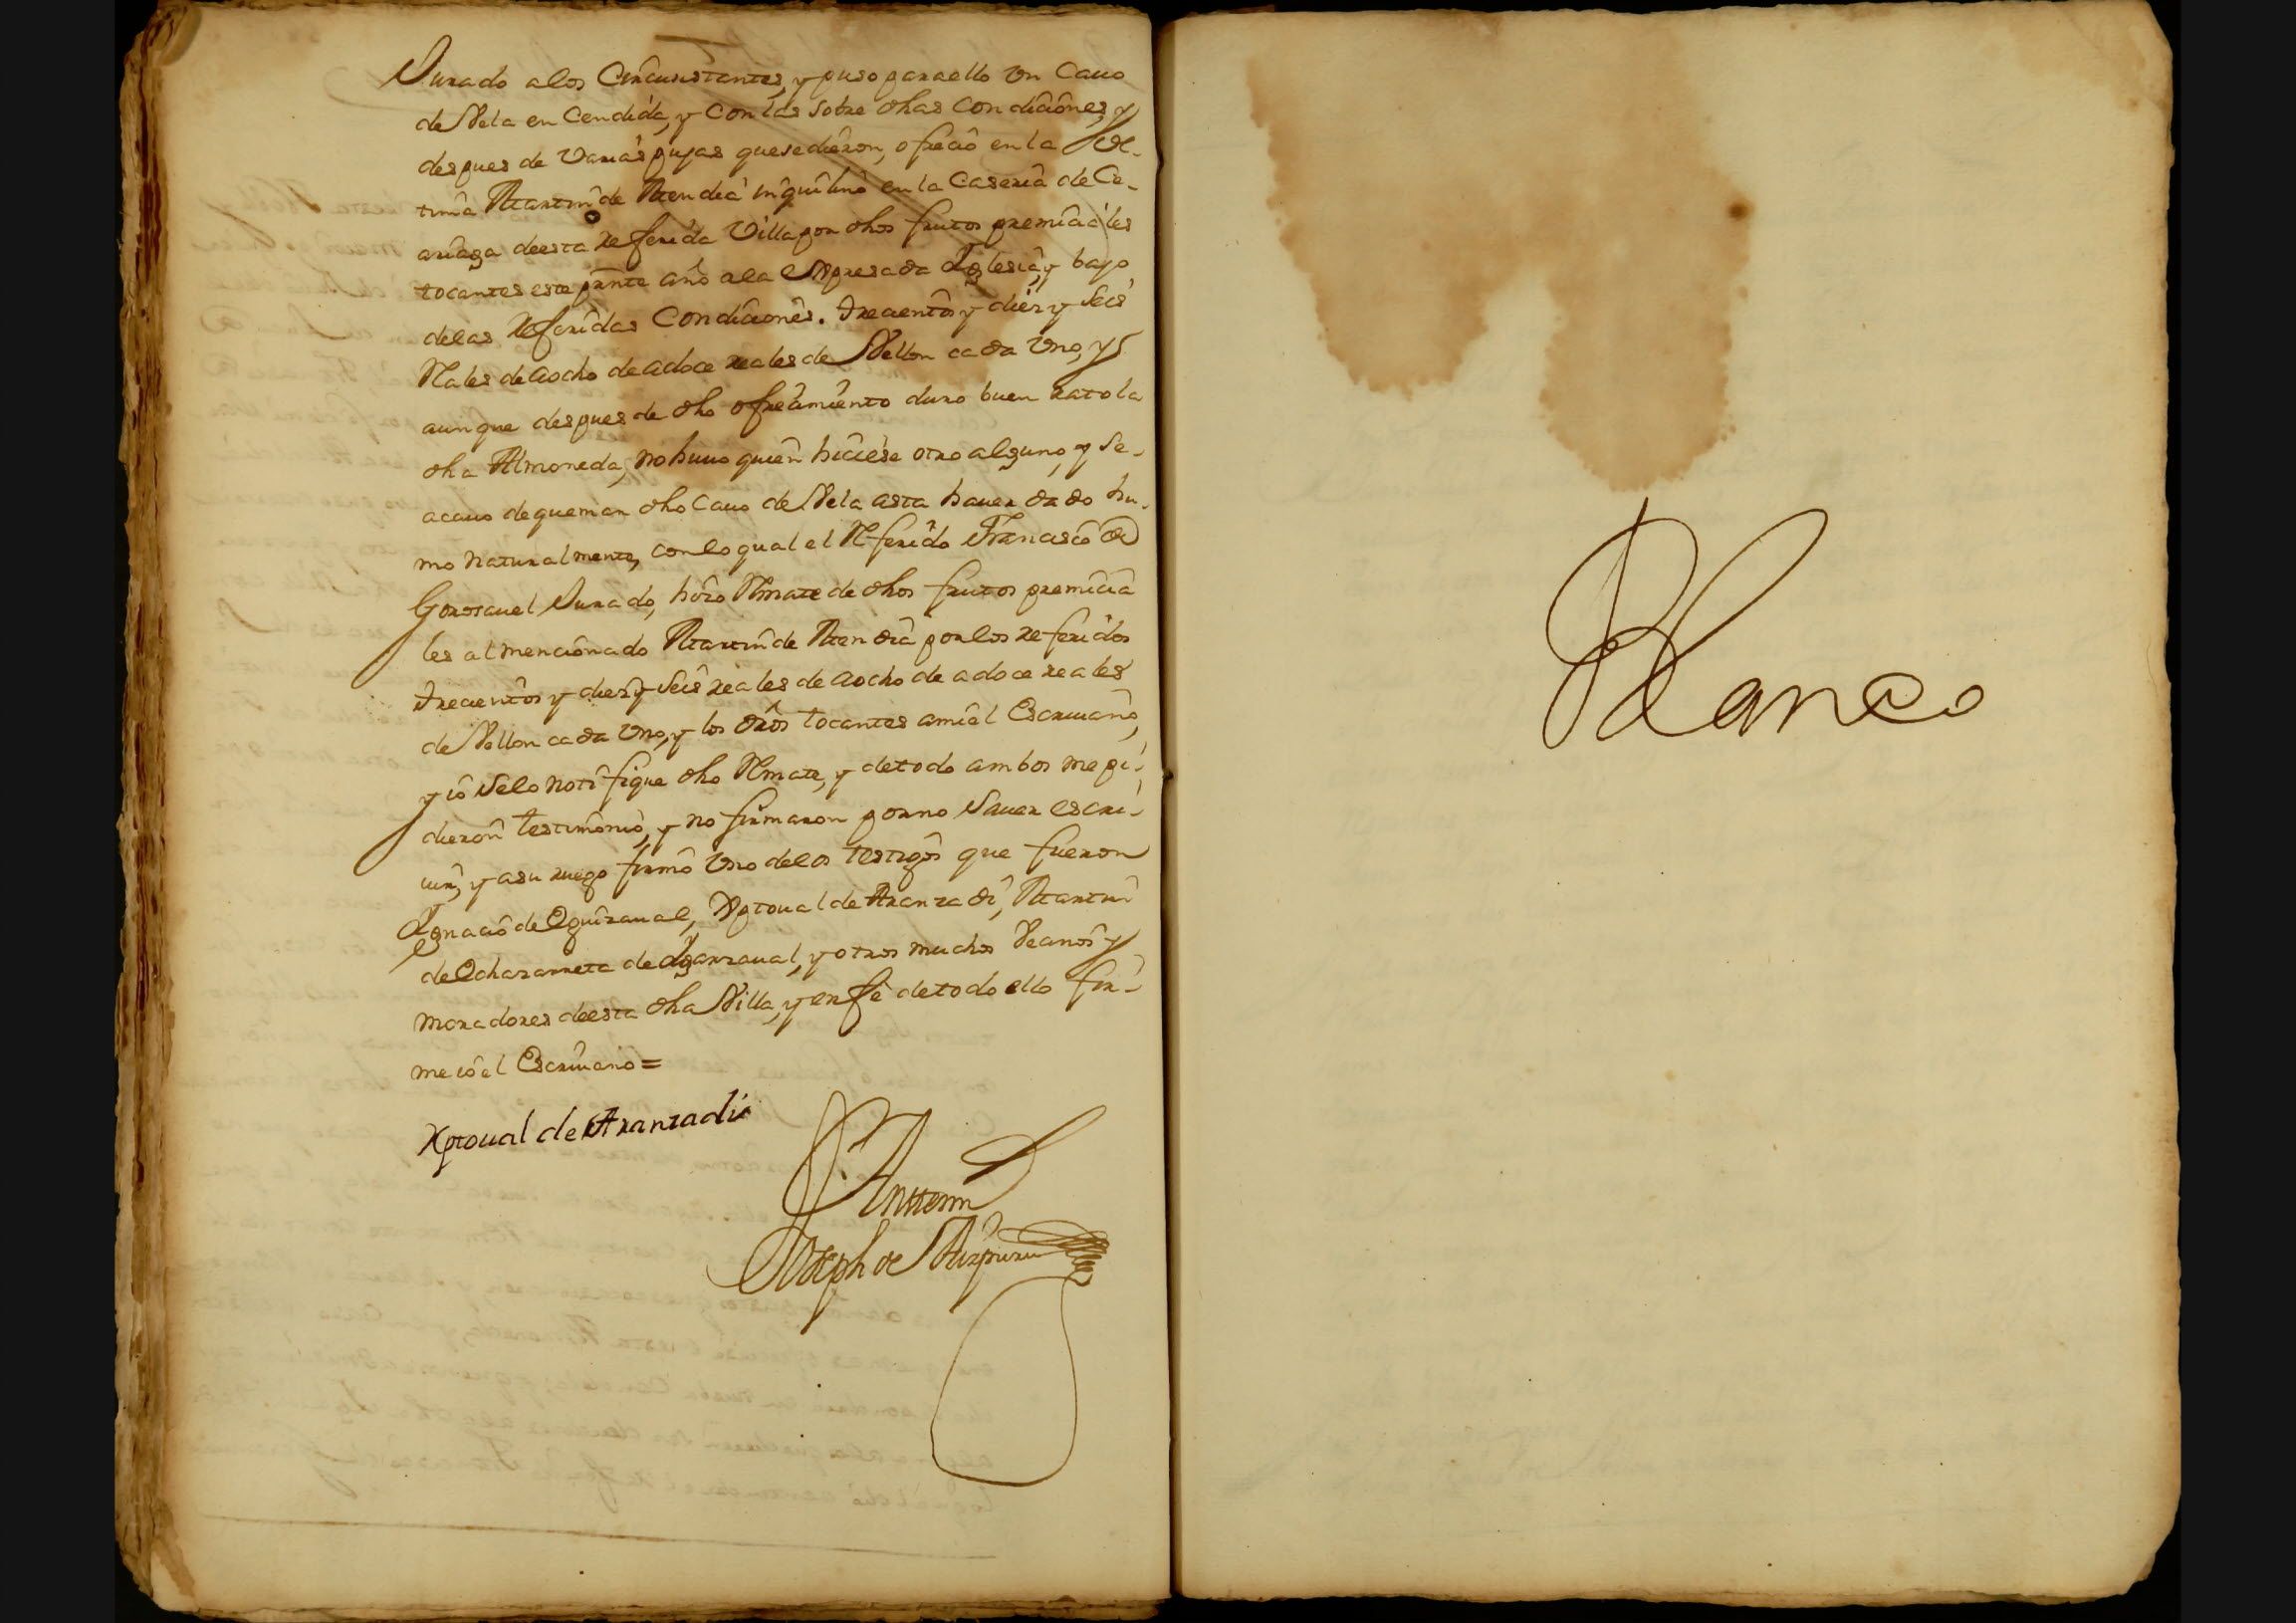 Jurado a los Circunstantes, y puso para ello Vn Cauo
de Vela en Cendida, y Con las sobre dhas Condiciones, y
despues de Varias pujas que se dieron, ofrecio en la
tima Martin de Mendia inquilino en la Caseria de Ce-
ariaga de esta referida Villa por dhos frutos premiciales
tocantes este pnte año a la Expresada Yglesia, y bajo
de las Referidas Condiciones. trecientos y diez y Seis
Rales de a ocho de a doce reales de Vellon cada Vno, y
aunque despues de dho ofrecimiento duro buen rato la
dha Almoneda, no huuo quien hiciese otro alguno, y se
acauo de quemar dho Cauo de Vela asta hauer dado hu-
mo naturalmente, con lo qual el Referido Francisco de
Gorosauel Jurado, hizo Rmate de dhos frutos premicia
les al mencionado Martin de Mendia por los referidos
trecientos y diez y Seis reales de a ocho de a doce reales
de Vellon cada Vno, y los dros tocantes a mi el Escriuano,
y io Se lo notifique dho Rmate, y de todo ambos me pi-
dieron testimonio, y no firmaron por no Sauer escri-
uir, y a su ruego firmo Vno de los testigos que fueron
Ygnacio de Eguiraual, Xptoual de Aranzadi, Martin
de Echazarreta de Ygarzaual, y otros muchos Vecinos y
moradores de esta dha Villa, y en fe de todo ello fir-
me io el Escriuano =
Xptoual de Aranzadi
Antemi
Joseph de Aizpuru
Blanco